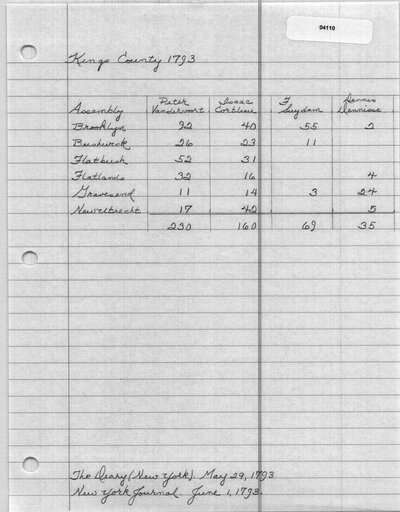 04110
Kings County 1793
Assembly Peter Vandervoort Isaac Cortelyou F Suydam Dennis Dennisse
Brooklyn 92 40 55 2
Bushwick 26 23 11
Flatbush 52 31
Flatlands 32 16 4
Gravesend 11 14 3 24
New Utrecht 17 42 5
230 160 69 35
The Diary (New York). May 29, 1793
New York Journal. June 1, 1793.